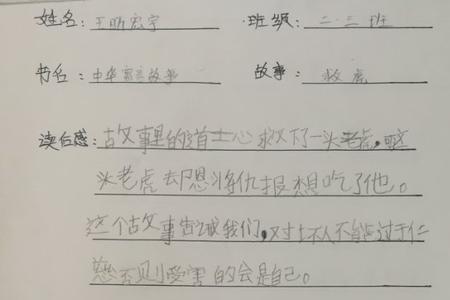 姓名：王昕宏宇 班级：二.三班
书名：中华寓言故事 故事：救虎
读后感：故事里的道士心救了一头老虎，这
头老虎去恩将仇报想吃了他。
这个故事告诫我们，对坏人不能过于仁
慈否则受害的会是自己。